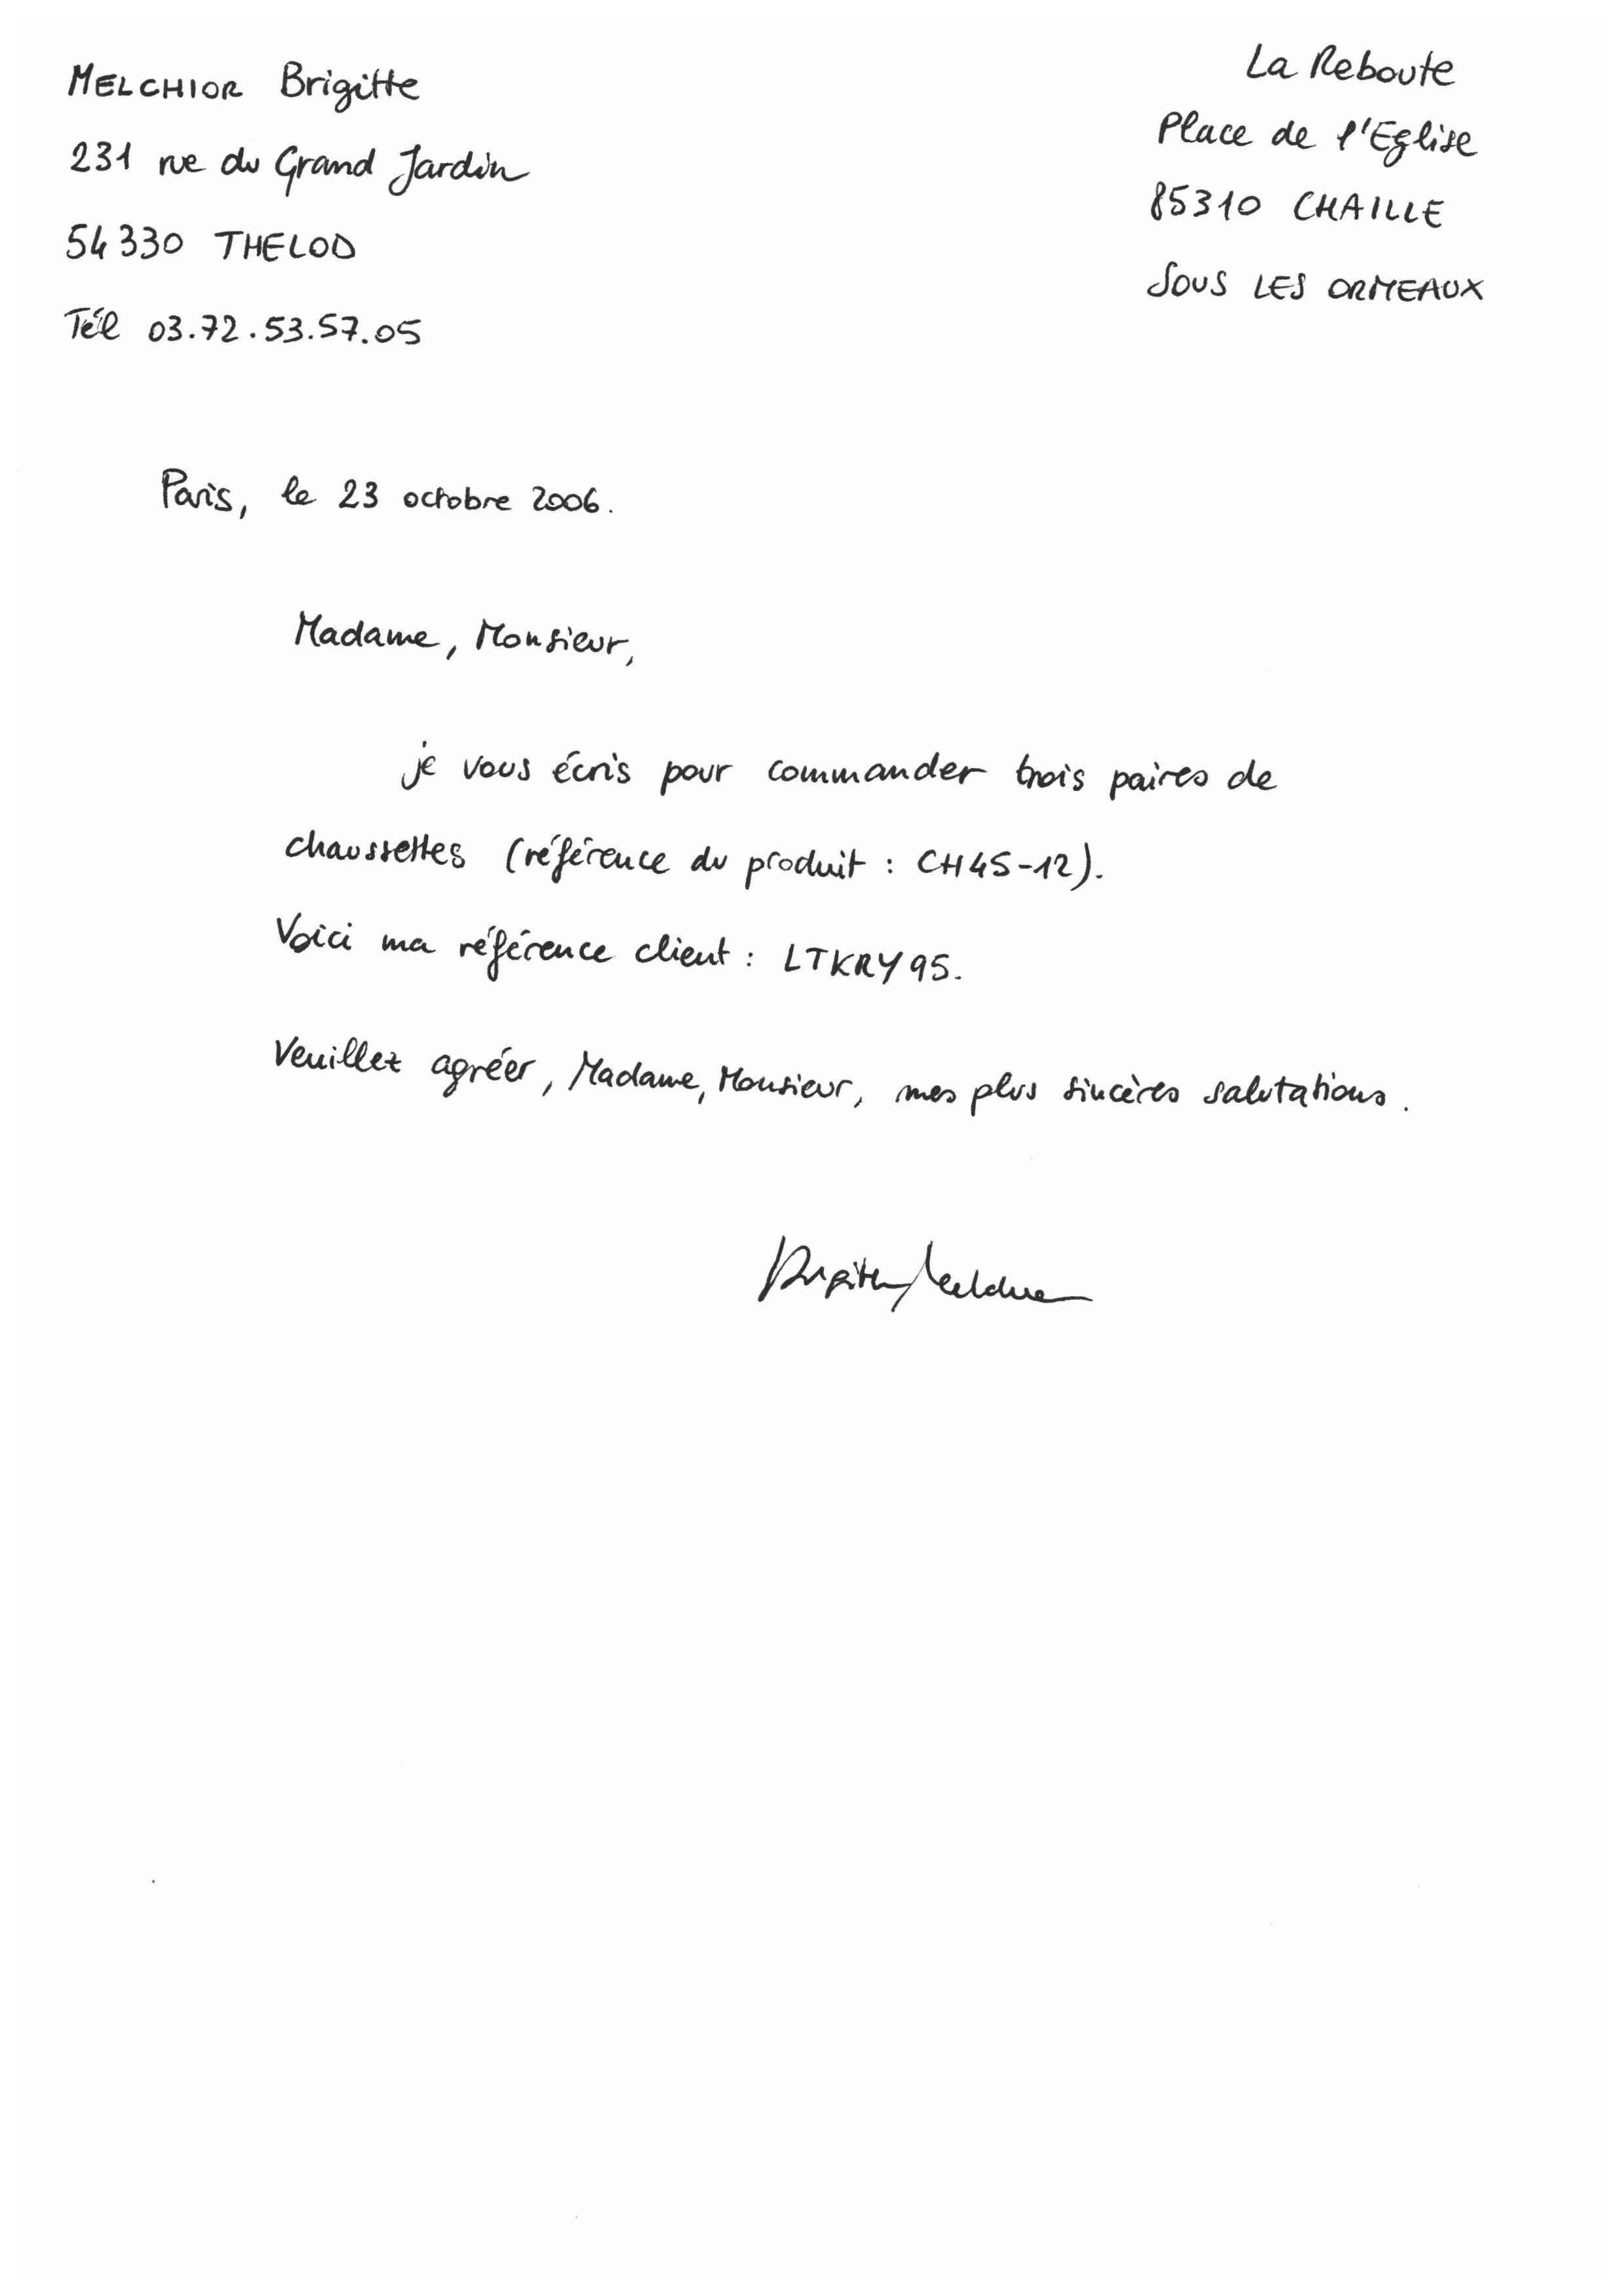 MELCHIOR Brigitte
231 rue du Grand Jardin
54330 THELOD
Tél 03.72.53.57.05
La Reboute
Place de l'Eglise
85310 CHAILLE
SOUS LES ORMEAUX
Paris, le 23 octobre 2006.
Madame, Monsieur,
je vous écris pour commander trois paires de
chaussettes (référence du produit : CH45-12).
Voici ma référence client : LTKRY95.
Veuillez agréer, Madame, Monsieur, mes plus sincères salutations.